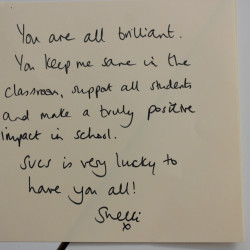 You are all brilliant.
You keep me sane in the
classroom, support all students
and make a truly positive
impact in school.
SVCS is very lucky to
have you all!
Shelli
x